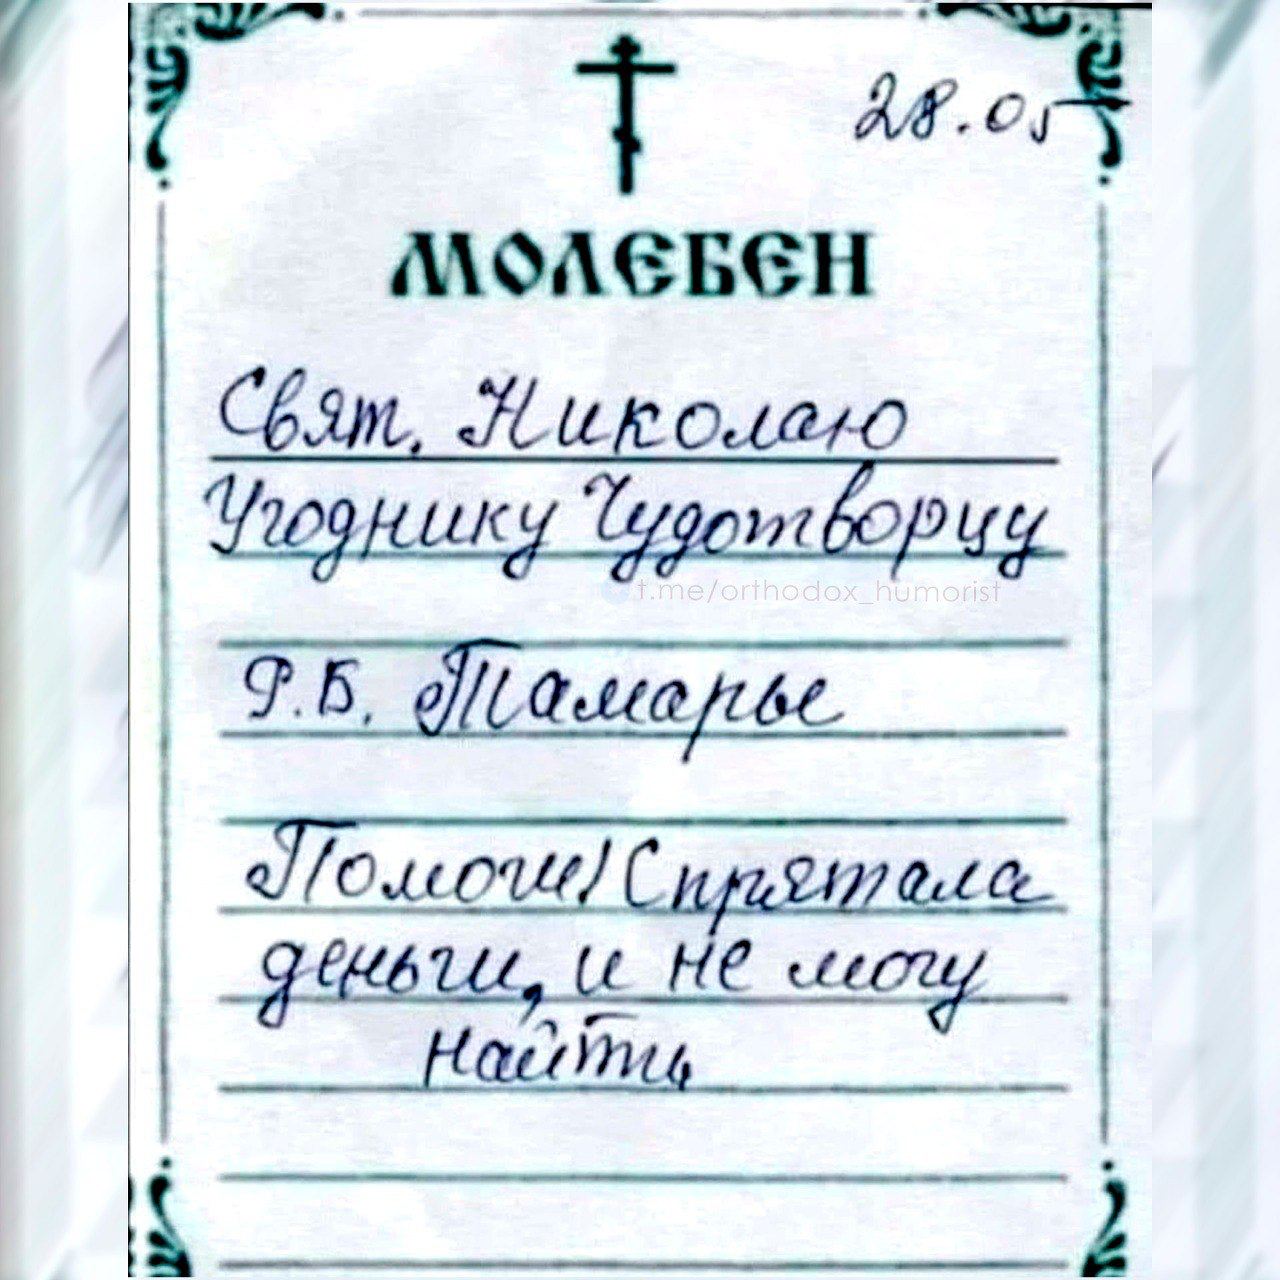 28.05
МОЛЕБЕН
Свят. Николаю
Угоднику Чудотворцу
t.me/orthodox_humorist
Р.Б. Тамары
Помоги! Спрятала
деньги, и не могу
найти